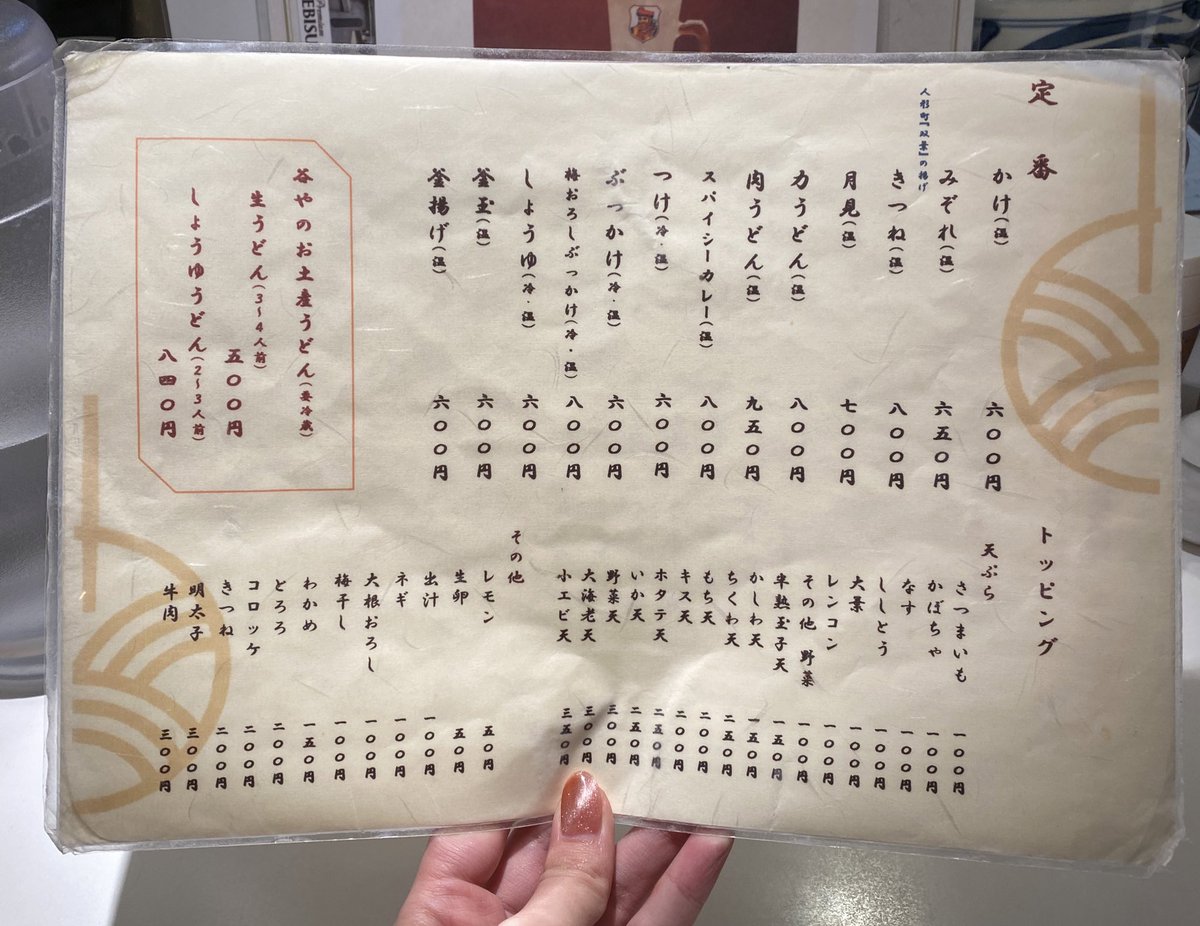 定番
かけ(温) 六〇〇円
みぞれ(温) 六五〇円
人形町『双葉』の揚げ
きつね(温) 八〇〇円
月見(温) 七〇〇円
力うどん(温) 八〇〇円
肉うどん(温) 九五〇円
スパイシーカレー(温) 八〇〇円
つけ(冷・温) 六〇〇円
ぶっかけ(冷・温) 六〇〇円
梅おろしぶっかけ(冷・温) 八〇〇円
しょうゆ(冷・温) 六〇〇円
釜玉(温) 六〇〇円
釜揚げ(温) 六〇〇円
谷やのお土産うどん(要冷蔵)
生うどん(3〜4人前)
五〇〇円
しょうゆうどん(2〜3人前)
八四〇円
トッピング
天ぷら
さつまいも 一〇〇円
かぼちゃ 一〇〇円
なす 一〇〇円
ししとう 一〇〇円
大葉 一〇〇円
レンコン 一〇〇円
その他 野菜 一〇〇円
半熟玉子天 一五〇円
かしわ天 一五〇円
ちくわ天 二五〇円
もち天 二〇〇円
キス天 二〇〇円
ホタテ天 二五〇円
いか天 二五〇円
野菜天 三〇〇円
大海老天 三〇〇円
小エビ天 三五〇円
その他
レモン 五〇円
生卵 五〇円
出汁 一〇〇円
ネギ 一〇〇円
大根おろし 一〇〇円
梅干し 一〇〇円
わかめ 一五〇円
とろろ 二〇〇円
コロッケ 二〇〇円
きつね 二〇〇円
明太子 三〇〇円
牛肉 三〇〇円